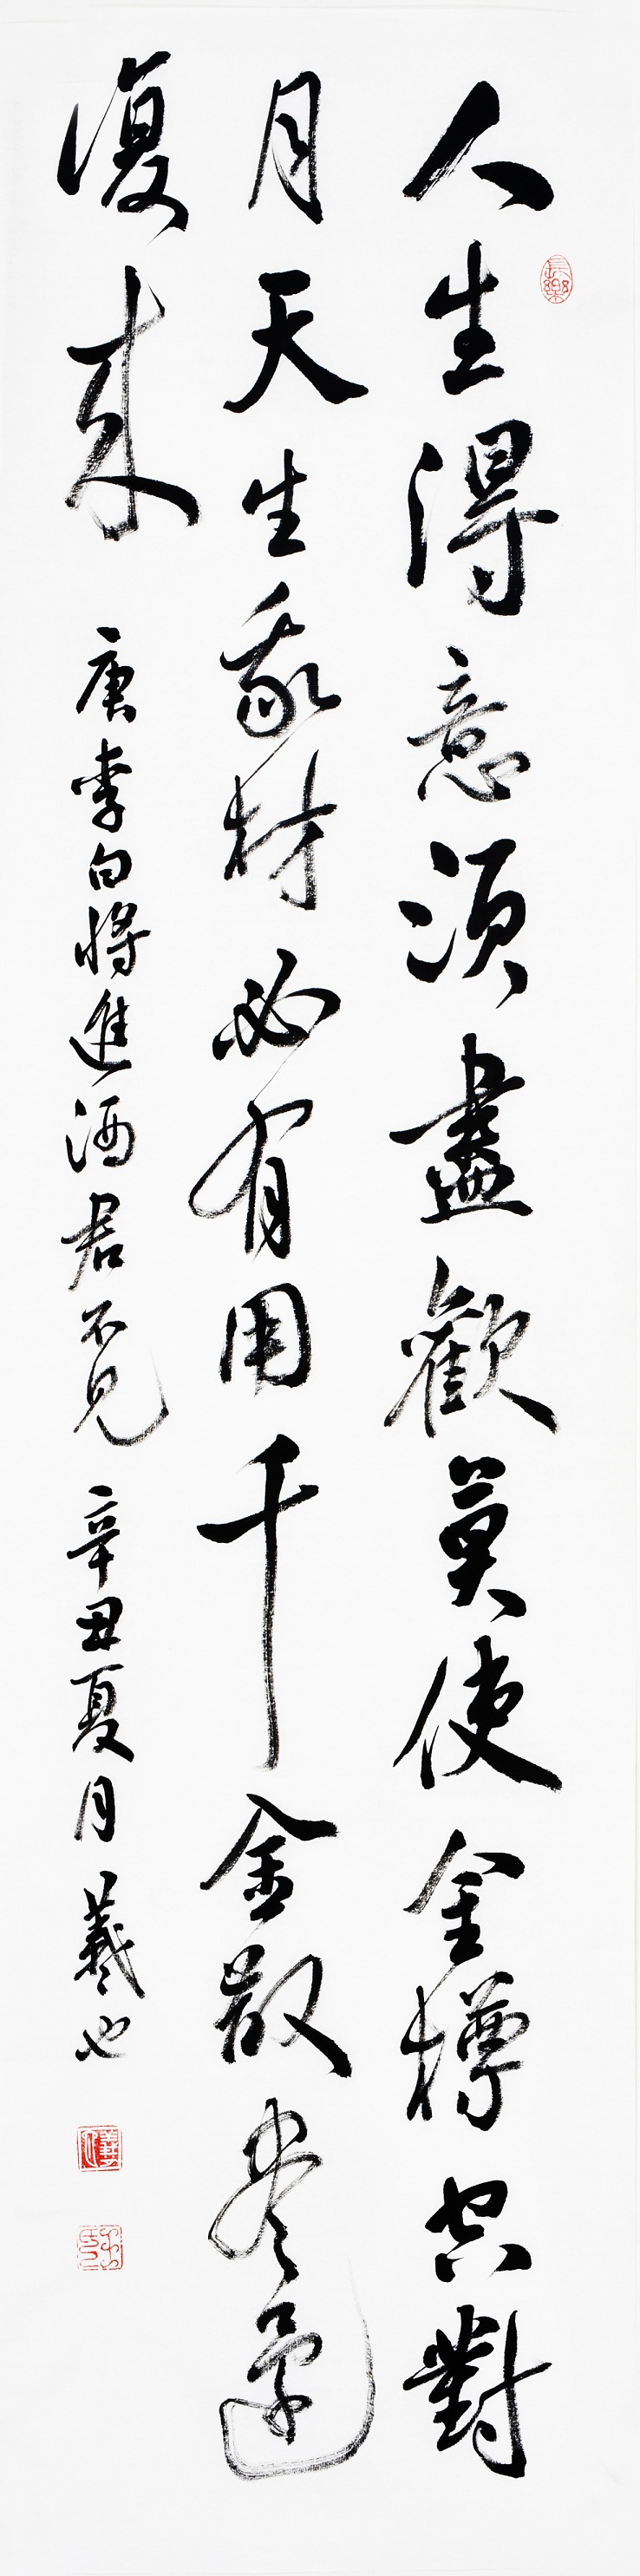 長樂
人生得意須盡歡莫使金樽空對
月天生我材必有用千金散尽還
復來 唐李白將進酒君不見 辛丑夏月 羲也